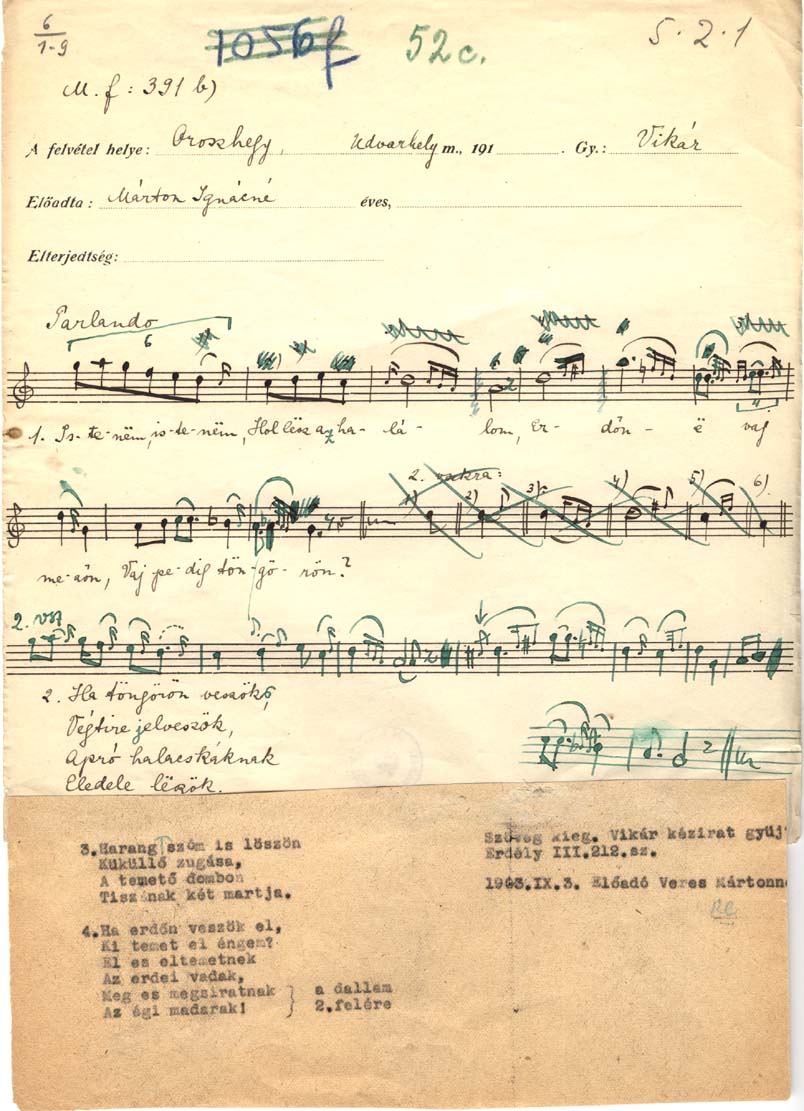 6
1-9
1056f
52c.
5.2.1
M.f: 391 b)
A felvétel helye: Oroszhegy, Udvarhely m., 191 . Gy.: Vikár
Előadta: Márton Ignácné éves,
Elterjedtség:
Parlando
6
1. Is-te-nëm, is-te-nëm, Hol lësz az ha-lá-lom, Er-dőn-ë vaj
2.
1) 2) 3) 4) 5) 6)
me-zőn, Vaj pe-dig tön-gö-rön?
2. vsz
2. Ha töngörön veszök,
Végtire jelveszök,
Apró halacskáknak
Eledele lëszök.
3.Harang szóm is löszön
Küküllő zugása,
A temető dombom
Tiszának két martja.
4.Ha erdőn veszök el,
Ki temet el éngem?
El es eltemetnek
Az erdei vadak,
Meg es megsiratnak
Az égi madarak!
a dallam
2.felére
Szöveg kieg. Vikár kézirat gyüj
Erdély III.212.sz.
1903.IX.3. Előadó Veres Mártonn